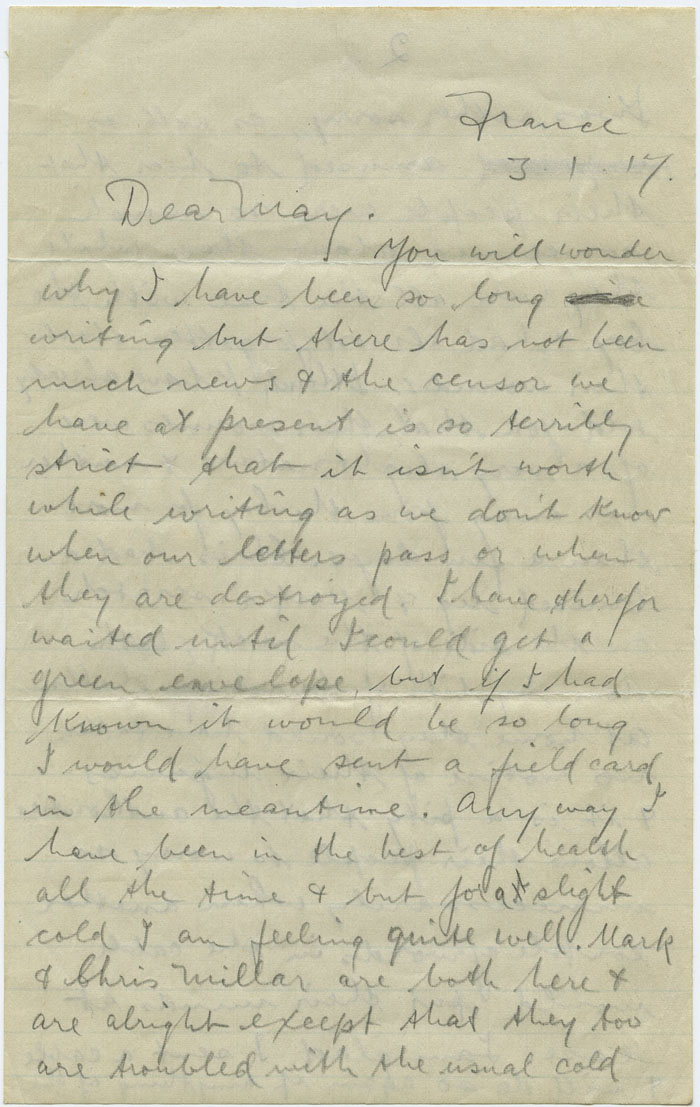 France
3 1 17.
Dear May.
You will wonder
why I have been so long
writing but there has not been
much news & the censor we
have at present is so terribly
strict that it isn't worth
while writing as we don't know
when our letters pass or when
they are destroyed. I have therefor
waited until I could get a
green envelope, but if I had
known it would be so long
I would have sent a field card
in the meantime. Any way I
have been in the best of health
all the time & but for slight
cold I am feeling quite well. Mark
& Chris Millar are both here &
are alright except that they too
are troubled with the usual cold